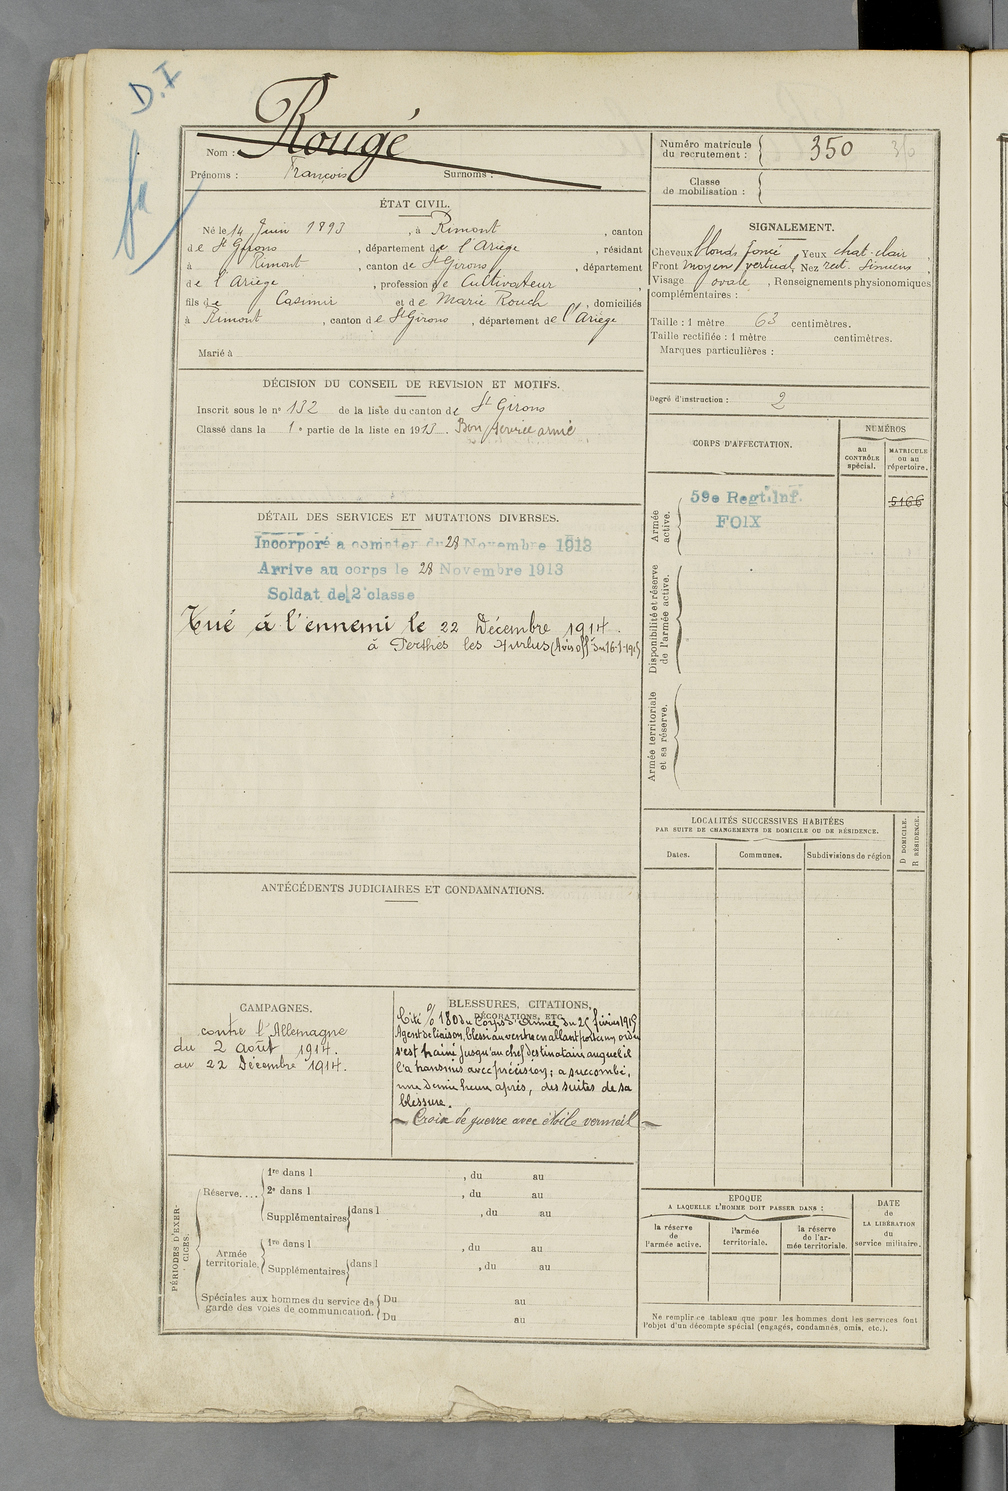 D.I
Nom : Rougé
Prénoms : François Surnoms :
ÉTAT CIVIL.
Né le 14 Juin 1893, à Rimont, canton
de St Girons, département de l'Ariège, résidant
à Rimont, canton de St Girons, département
de l'Ariège, profession de Cultivateur,
fils de Casimir et de Marie Rouch, domiciliés
à Rimont, canton de St Girons, département de l'Ariège
Marié à
DÉCISION DU CONSEIL DE REVISION ET MOTIFS.
Inscrit sous le n° 132 de la liste du canton de St Girons
Classé dans la 1e partie de la liste en 1913. Bon service armé
DÉTAIL DES SERVICES ET MUTATIONS DIVERSES.
Incorporé a compter du 28 Novembre 1913
Arrive au corps le 28 Novembre 1913
Soldat de 2 classe
Tué à l'ennemi le 22 Décembre 1914.
à Perthes les Hurlus (Avis off. du 16-1-1915
ANTÉCÉDENTS JUDICIAIRES ET CONDAMNATIONS.
CAMPAGNES.
contre l'Allemagne
du 2 août 1914.
au 22 Décembre 1914.
BLESSURES, CITATIONS,
DÉCORATIONS, ETC.
Cité % 180 du Corps d'Armée du 25 février 1915
Agent de liaison, blessé au ventre en allant porter un ordre
s'est traîné jusqu'au chef destinataire auquel il
l'a transmis avec précision; a succombé,
une demie heure après, des suites de sa
blessure.
Croix de guerre avec étoile vermeil
PÉRIODES D'EXERCICES.
Réserve.... 1re dans l , du au
2e dans l , du au
Supplémentaires dans l , du au
Armée territoriale. 1re dans l , du au
Supplémentaires dans l , du au
Spéciales aux hommes du service de garde des voies de communication. Du au
Du au
Numéro matricule du recrutement : 350
Classe de mobilisation :
SIGNALEMENT.
Cheveux blonds foncé Yeux chat. clair
Front moyen vertical, Nez rect. Sinueux
Visage ovale, Renseignements physionomiques
complémentaires :
Taille : 1 mètre 63 centimètres.
Taille rectifiée : 1 mètre centimètres.
Marques particulières :
Degré d'instruction : 2
CORPS D'AFFECTATION.
NUMÉROS
au CONTRÔLE spécial.
MATRICULE ou au répertoire.
Armée active.
59e Regt. Inf.
FOIX
5166
Disponibilité et réserve de l'armée active.
Armée territoriale et sa réserve.
LOCALITÉS SUCCESSIVES HABITÉES
PAR SUITE DE CHANGEMENTS DE DOMICILE OU DE RÉSIDENCE.
Dates. Communes. Subdivisions de région
D DOMICILE.
R RÉSIDENCE.
EPOQUE
A LAQUELLE L'HOMME DOIT PASSER DANS :
la réserve de l'armée active.
l'armée territoriale.
la réserve de l'armée territoriale.
DATE de LA LIBÉRATION du service militaire.
Ne remplir ce tableau que pour les hommes dont les services font
l'objet d'un décompte spécial (engagés, condamnés, omis, etc.).